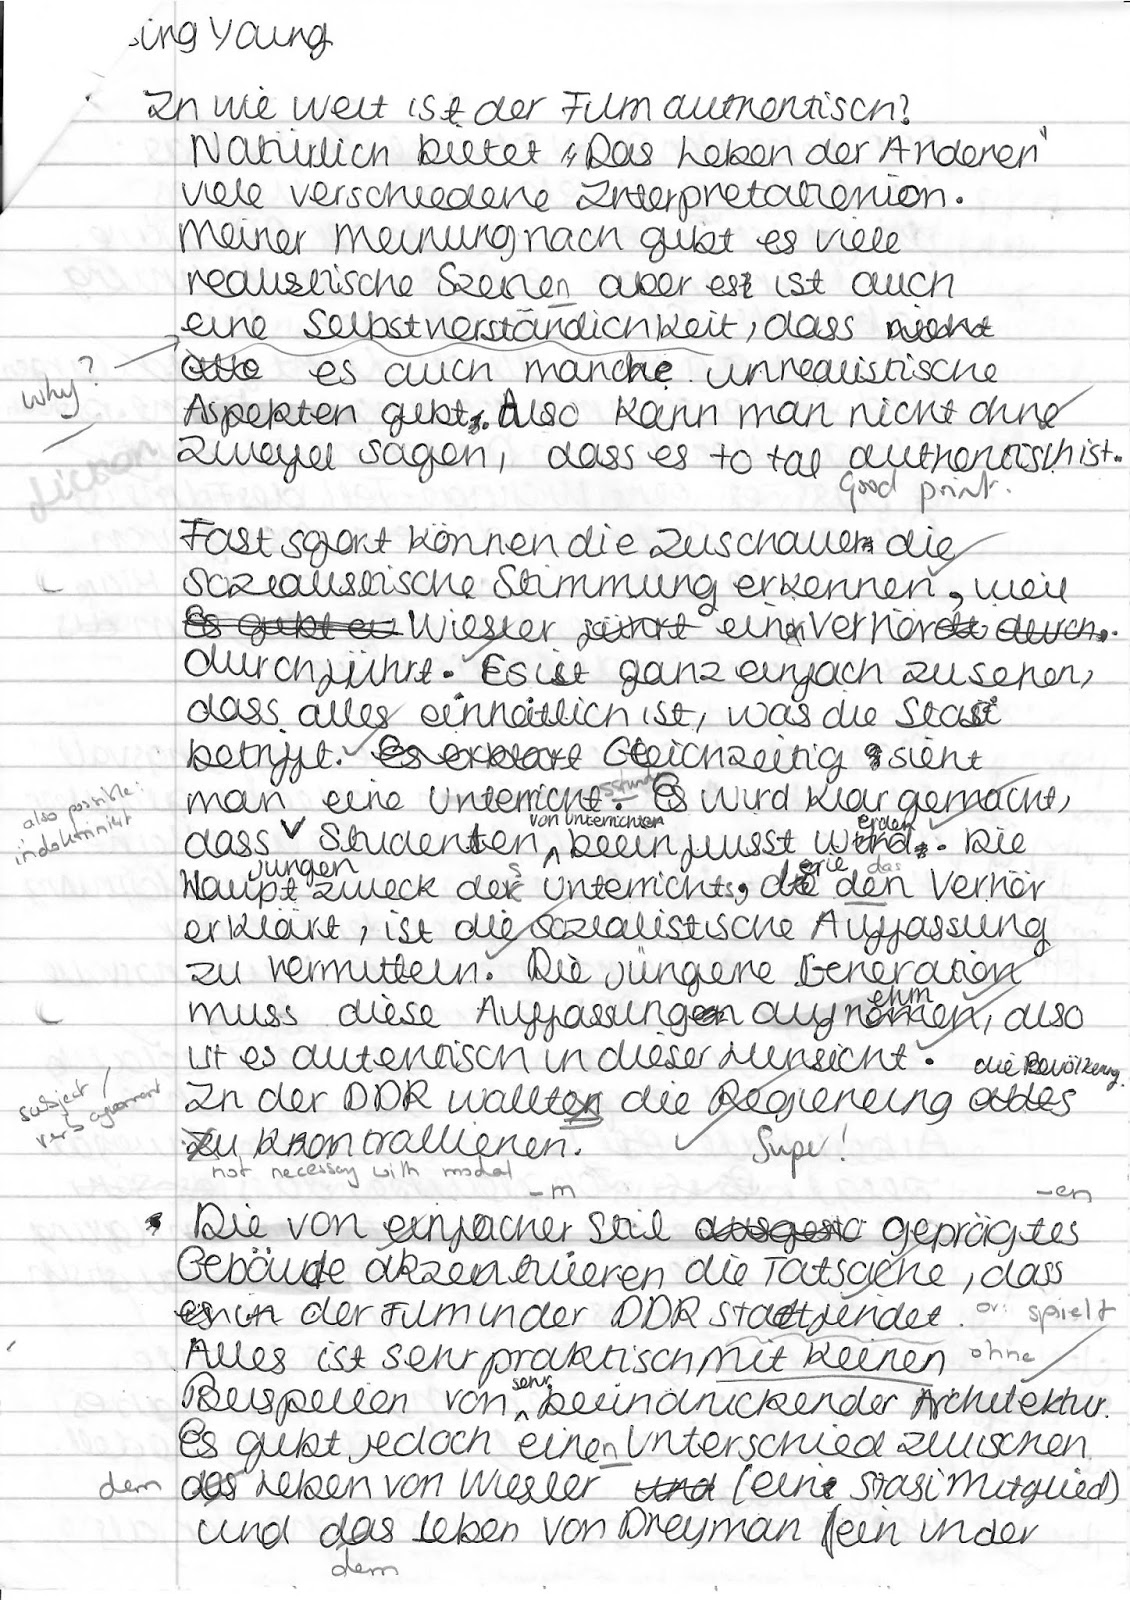 sing Young
In wie weit ist der Film authentisch?
Natürlich bietet "Das Leben der Anderen"
viele verschiedene Interpretationen.
Meiner Meinung nach gibt es viele
realistische Szenen aber es ist auch
eine Selbstverständichkeit, dass nicht
why?
es auch manche unrealistische
Aspekten gibt. Also kann man nicht ohne
Zweifel sagen, dass es total authentisch ist.
Good point.
Fast sofort können die Zuschauer die
sozialistische Stimmung erkennen, weil
Es gibt ein Wiesler führt ein Verhör durch.
durchführt. Es ist ganz einfach zu sehen,
dass alles einheitlich ist, was die Stasi
betrifft. Es erklärt Gleichzeitig sieht
man eine Unterricht. Es wird klar gemacht,
sstunde
also possible: indoktriniert
dass Studenten beeinflusst werden. Die
jungen
von Unterrichten
Hauptzweck des Unterrichts, die den Verhör
erklärt, ist die sozialistische Auffassung
das
zu vermitteln. Die jüngere Generation
muss diese Auffassungen aufnehmen, also
ist es autentisch in dieser Hinsicht.
die Bevölkerung
subject / verb agreement
In der DDR wollten die Regierung alles
zu kontrollieren.
Super!
not necessary with modal
-m
-en
Die von einfacher Stil geprägtes
Gebäude akzentuieren die Tatsache, dass
der Film in der DDR stattfindet.
or: spielt
Alles ist sehr praktisch mit keinen
ohne
Beispielen von sehr beeindruckender Architektur.
Es gibt jedoch einen Unterschied zwischen
dem
das Leben von Wiesler und (ein Stasi Mitglied)
und das Leben von Dreyman (ein in der
dem